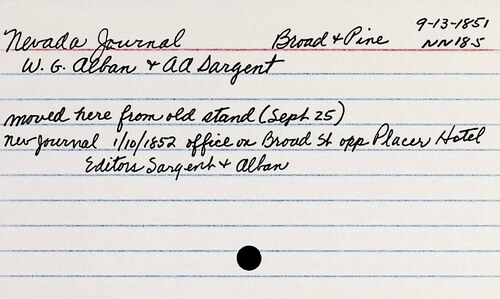 Nevada Journal Broad & Pine 9-13-1851
W. G. Alban & AA Sargent NN18-5
moved here from old stand (Sept 25)
New Journal 1/10/1852 office on Broad St opp Placer Hotel
Editors Sargent & Alban